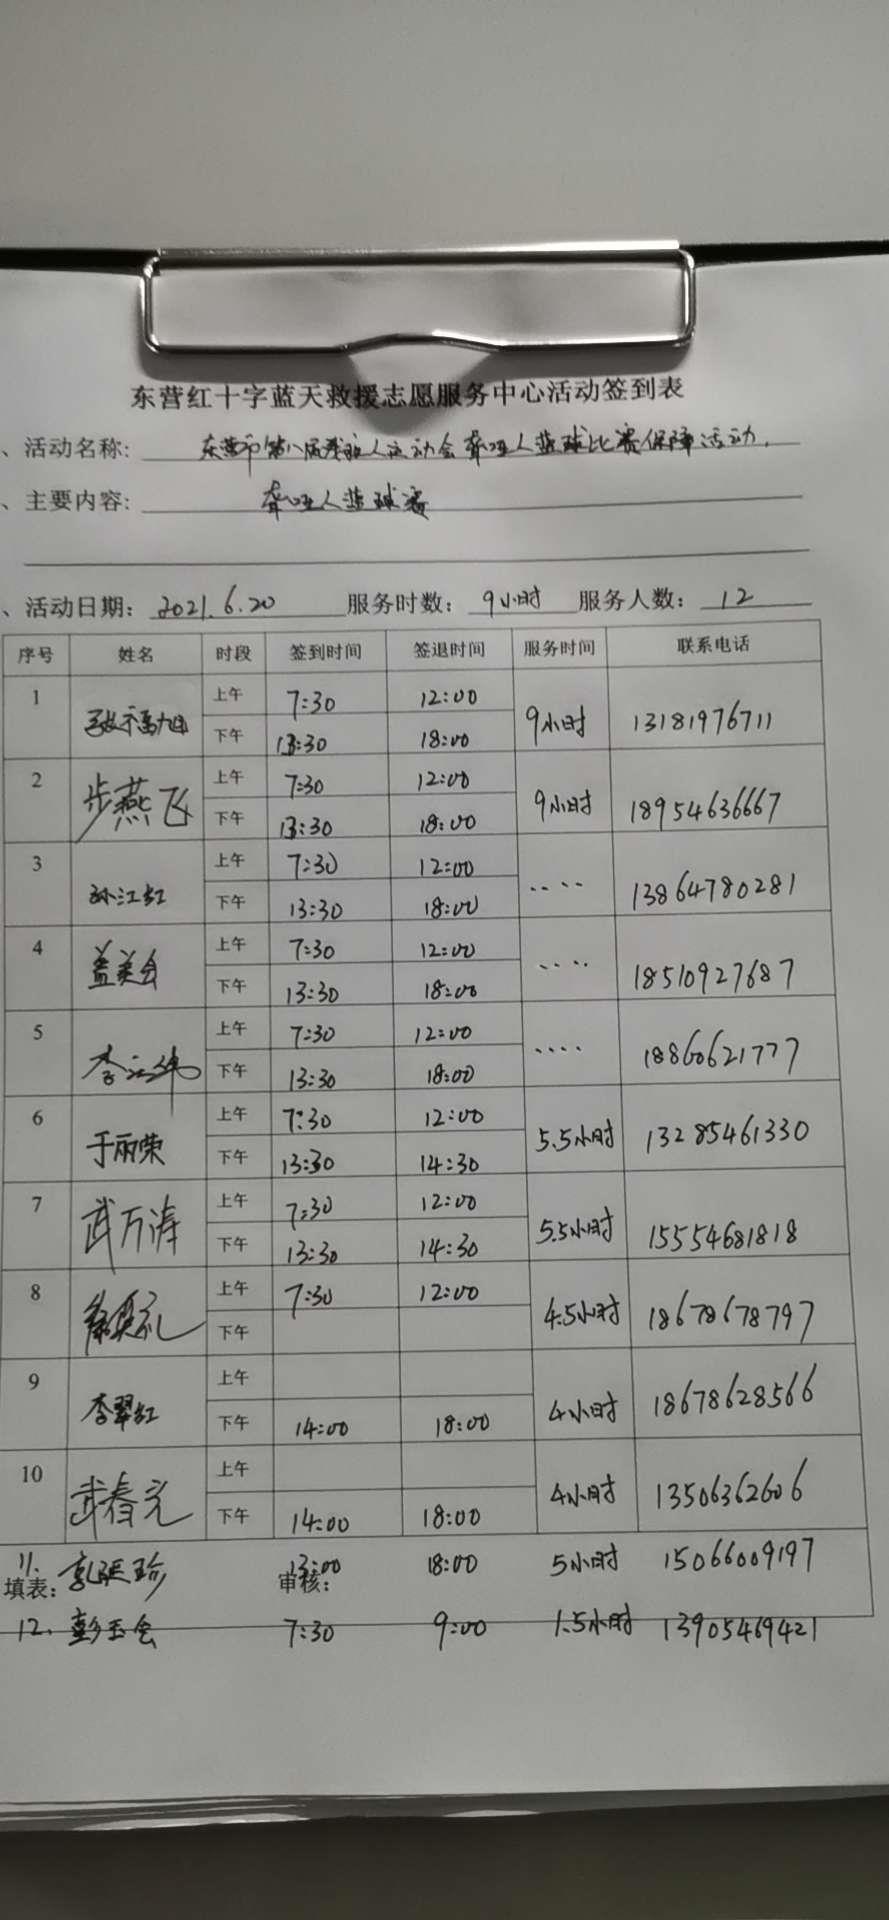 东营红十字蓝天救援志愿服务中心活动签到表
、活动名称: 东营市第八届残疾人运动会聋哑人篮球比赛保障活动.
、主要内容: 聋哑人篮球赛
、活动日期: 2021.6.20 服务时数: 9小时 服务人数: 12
序号 姓名 时段 签到时间 签退时间 服务时间 联系电话
1 上午 7:30 12:00 9小时 13181976711
下午 13:30 18:00
2 步燕飞 上午 7:30 12:00 9小时 18954636667
下午 13:30 18:00
3 孙江红 上午 7:30 12:00 ···· 13864780281
下午 13:30 18:00
4 盖美会 上午 7:30 12:00 ···· 18510927687
下午 13:30 18:00
5 李 上午 7:30 12:00 ···· 18860621777
下午 13:30 18:00
6 于丽荣 上午 7:30 12:00 5.5小时 13285461330
下午 13:30 14:30
7 武万涛 上午 7:30 12:00 5.5小时 15554681818
下午 13:30 14:30
8 上午 7:30 12:00 4.5小时 18678678797
下午
9 李翠红 上午 4小时 18678628566
下午 14:00 18:00
10 武春光 上午 4小时 13506362606
下午 14:00 18:00
11. 13:00 18:00 5小时 15066009197
填表: 审核:
12. 彭玉会 7:30 9:00 1.5小时 13905469421